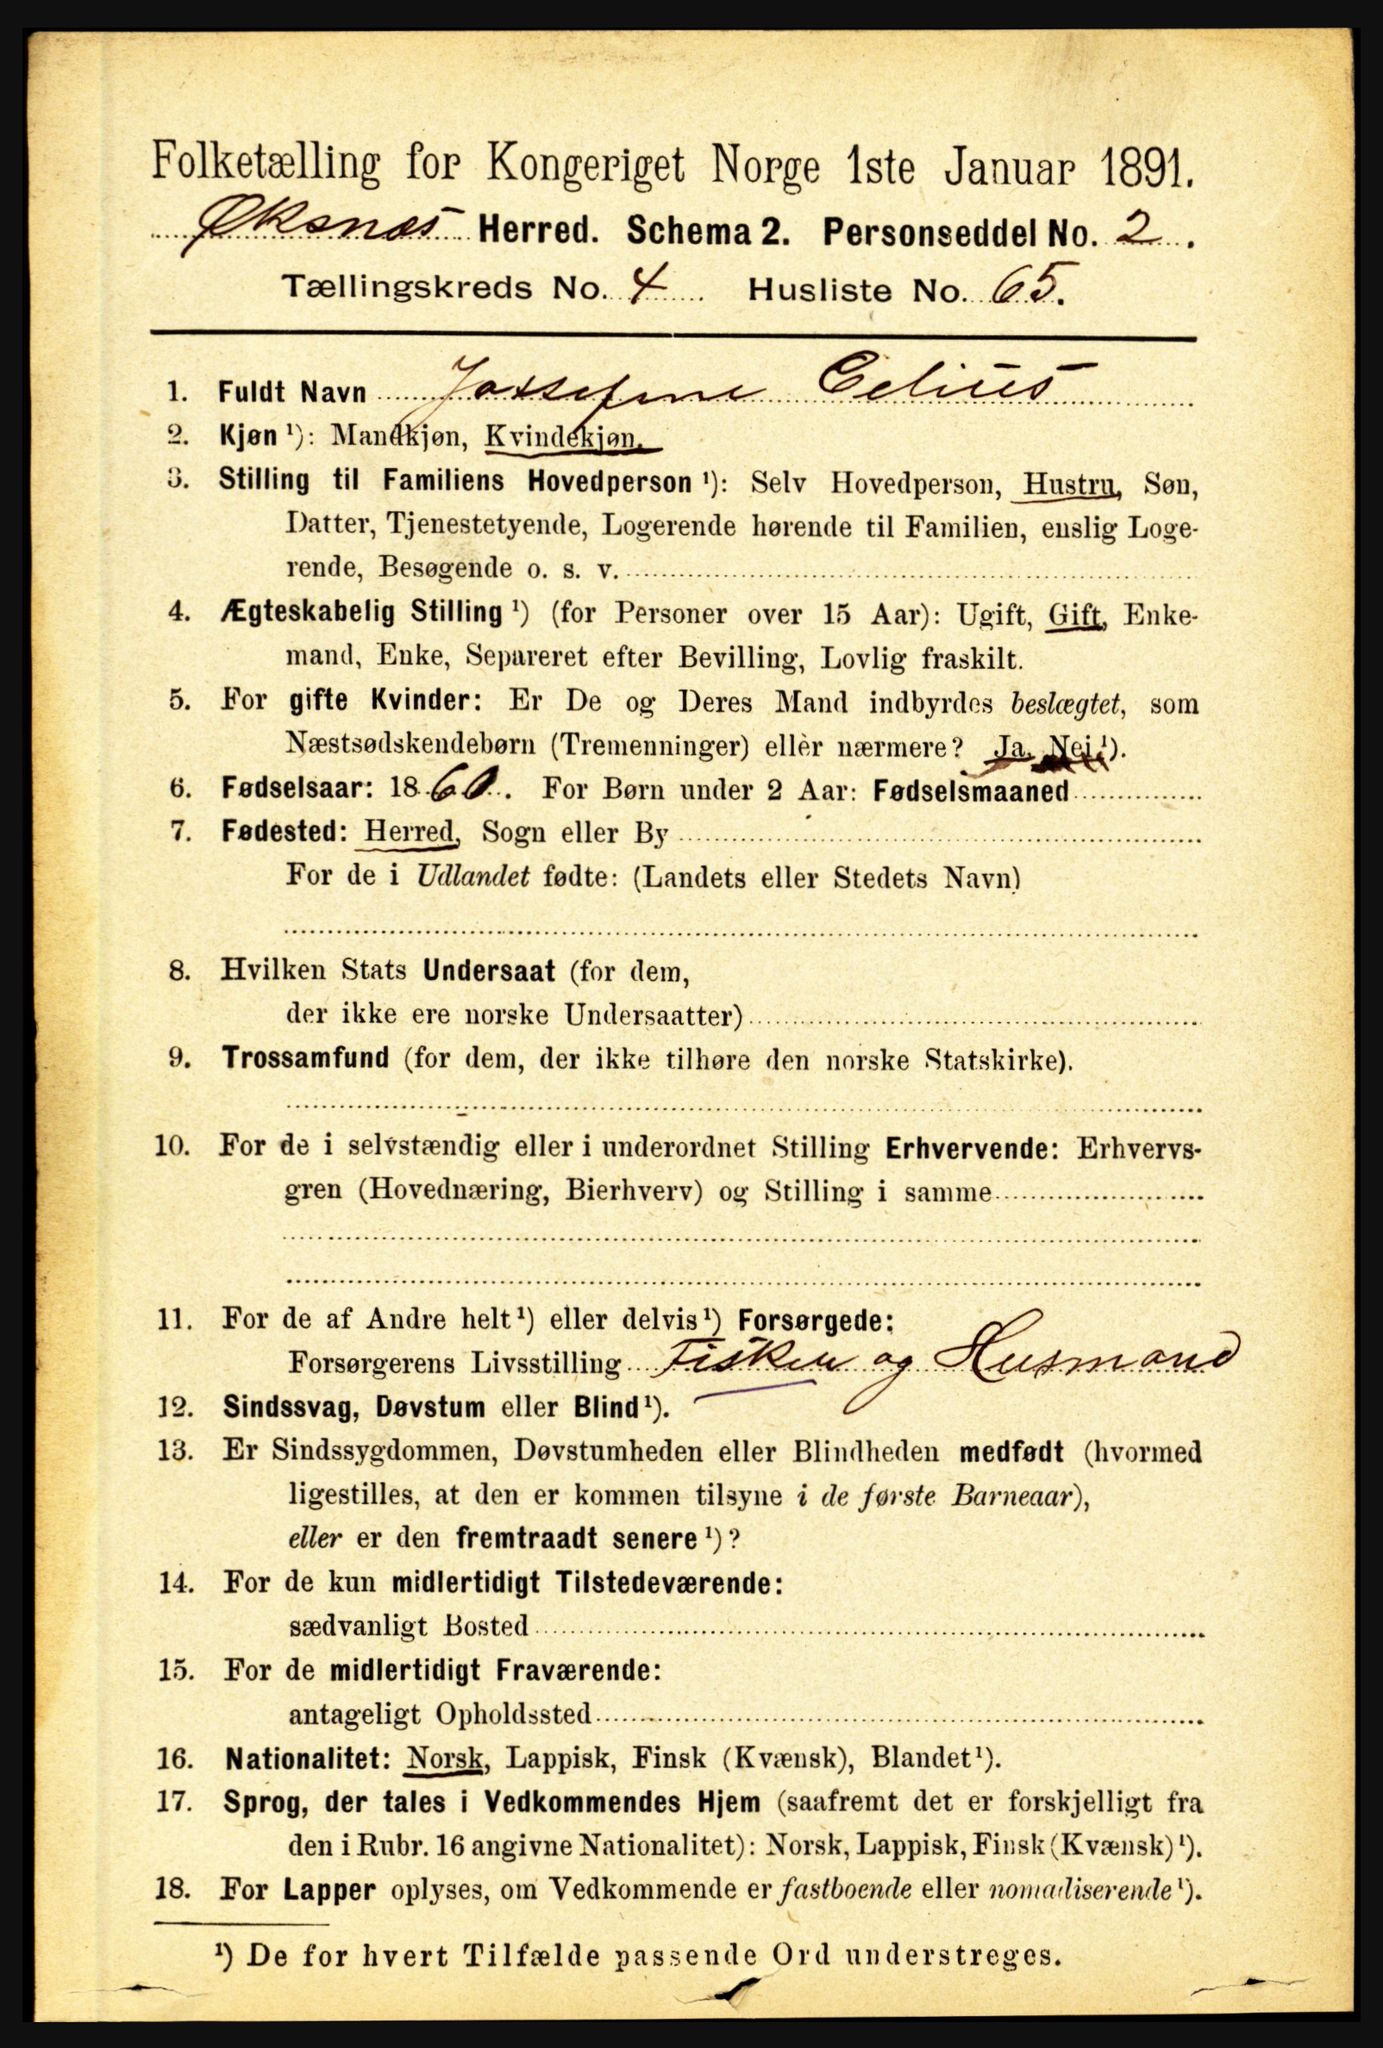 Folketælling for Kongeriget Norge 1ste Januar 1891.
Øksnæs Herred. Schema 2. Personseddel No. 2.
Tællingskreds No. 4 Husliste No. 65.
1. Fuldt Navn Jossefine Celius
2. Kjøn ¹): Mandkjøn, Kvindekjøn.
3. Stilling til Familiens Hovedperson ¹): Selv Hovedperson, Hustru, Søn,
Datter, Tjenestetyende, Logerende hørende til Familien, enslig Loge-
rende, Besøgende o. s. v.
4. Ægteskabelig Stilling ¹) (for Personer over 15 Aar): Ugift, Gift, Enke-
mand, Enke, Separeret efter Bevilling, Lovlig fraskilt.
5. For gifte Kvinder: Er De og Deres Mand indbyrdes beslægtet, som
Næstsødskendebørn (Tremenninger) eller nærmere? Ja. Nei ¹).
6. Fødselsaar: 1860. For Børn under 2 Aar: Fødselsmaaned
7. Fødested: Herred, Sogn eller By
For de i Udlandet fødte: (Landets eller Stedets Navn)
8. Hvilken Stats Undersaat (for dem,
der ikke ere norske Undersaatter)
9. Trossamfund (for dem, der ikke tilhøre den norske Statskirke).
10. For de i selvstændig eller i underordnet Stilling Erhvervende: Erhvervs-
gren (Hovednæring, Bierhverv) og Stilling i samme
11. For de af Andre helt ¹) eller delvis ¹) Forsørgede:
Forsørgerens Livsstilling Fisker og Husmand
12. Sindssvag, Døvstum eller Blind ¹).
13. Er Sindssygdommen, Døvstumheden eller Blindheden medfødt (hvormed
ligestilles, at den er kommen tilsyne i de første Barneaar),
eller er den fremtraadt senere ¹)?
14. For de kun midlertidigt Tilstedeværende:
sædvanligt Bosted
15. For de midlertidigt Fraværende:
antageligt Opholdssted
16. Nationalitet: Norsk, Lappisk, Finsk (Kvænsk), Blandet ¹).
17. Sprog, der tales i Vedkommendes Hjem (saafremt det er forskjelligt fra
den i Rubr. 16 angivne Nationalitet): Norsk, Lappisk, Finsk (Kvænsk) ¹).
18. For Lapper oplyses, om Vedkommende er fastboende eller nomadiserende ¹).
¹) De for hvert Tilfælde passende Ord understreges.